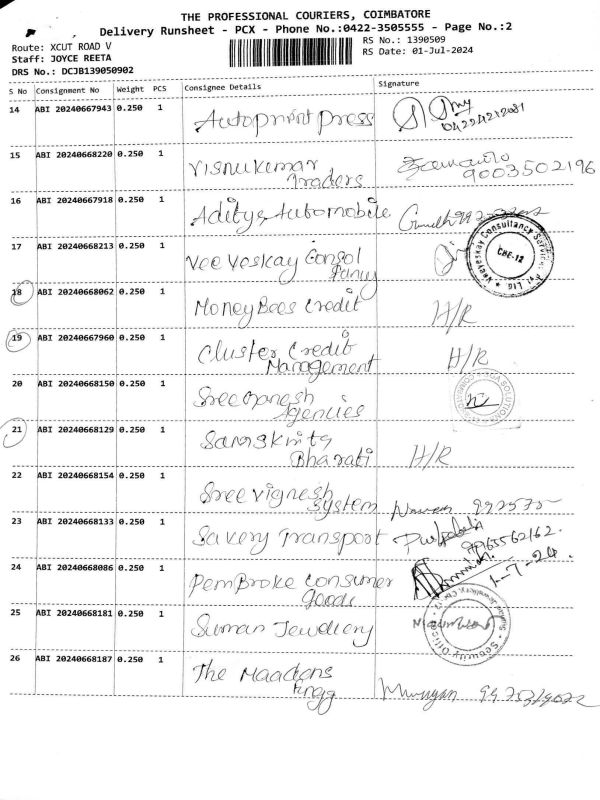 THE PROFESSIONAL COURIERS, COIMBATORE
Delivery Runsheet - PCX - Phone No.:0422-3505555 - Page No.:2
Route: XCUT ROAD V
RS No.: 1390509
Staff: JOYCE REETA
RS Date: 01-Jul-2024
DRS No.: DCJB139050902
S No Consignment No Weight PCS Consignee Details Signature
14 ABI 20240667943 0.250 1 Autoprint press
04224212081
15 ABI 20240668220 0.250 1 Visnukumar
Traders
9003502196
16 ABI 20240667918 0.250 1 Aditya Automobile
17 ABI 20240668213 0.250 1 Vee Yeskay Consol
Veeyeskay Consultancy Services Pvt Ltd
CBE-12
18 ABI 20240668062 0.250 1 MoneyBees Credit H/R
19 ABI 20240667960 0.250 1 Cluster Credit
Management H/R
20 ABI 20240668150 0.250 1 Sree Ganesh
Agencies
21 ABI 20240668129 0.250 1 Samskrita
Bharati H/R
22 ABI 20240668154 0.250 1 Sree Vignesh
System
23 ABI 20240668133 0.250 1 Savery Transport
9965562162.
24 ABI 20240668086 0.250 1 Pembroke Consumer
Goods
1-7-24.
25 ABI 20240668181 0.250 1 Suman Jewellery
Security Officer
26 ABI 20240668187 0.250 1 The Maadens
Murugan